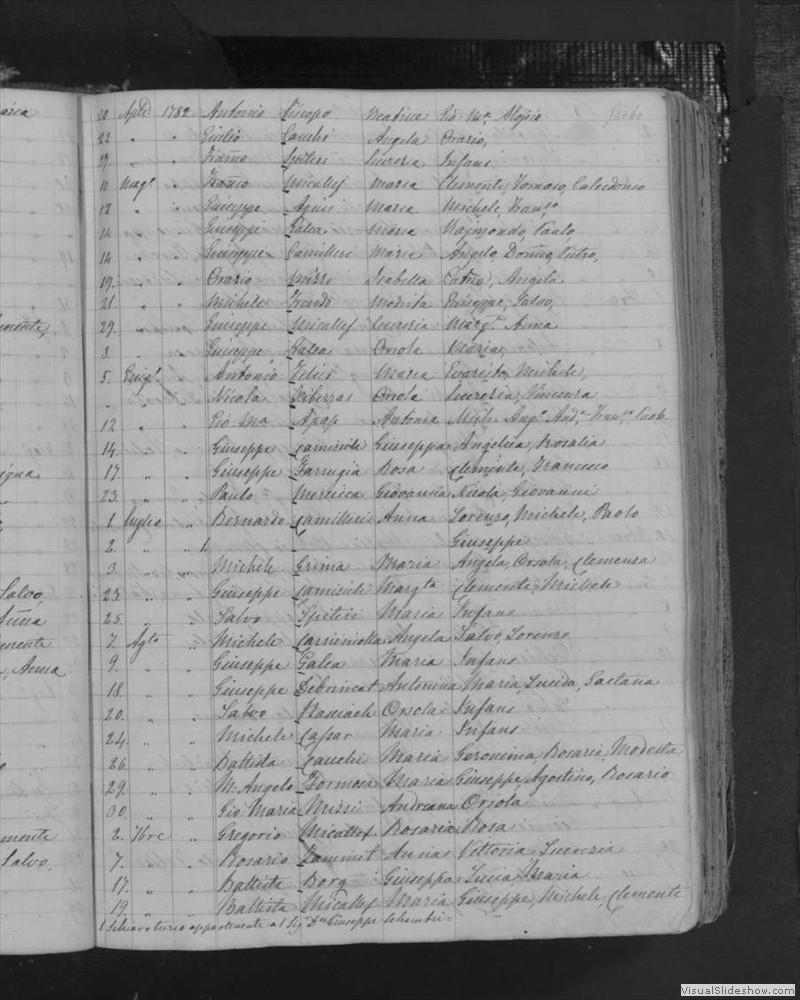 20 Aple 1782 Antonio Beatrice Gio Ma Aloisio
22 " " Giulio Cauchi Angela Orazio,
27. " " Spiteri Lucrezia Infans
10 Magº " Micallef Maria Clemente, Tomaso, Calcidonio
12 " " Giuseppe Agius Maria Michele, Franco
14 " " Giuseppe Galea Maria Raimondo, Paolo
14 " " Giuseppe Camilleri Maria Angelo Pietro,
19. " " Orazio Mizzi Isabella Angela
21. " " Michele Modesta Giuseppe, Salvo,
29. " " Giuseppe Micallef Lucrezia Margta Anna
8. " Giuseppe Galea Orsola Maria,
5. Giugº " Antonio Maria Evaristo, Michele,
" " Nicola Zib­erras Orsola Lucrezia, Vincenza
12 " " Gio Ma Apap Antonia
14. " " Giuseppe Camisuli Giuseppa Angelica, Rosalia
17. " " Giuseppe Farrugia Rosa Clemente, Francesco
23. " " Paulo Mercieca Giovannia Nicola, Giovanni
1 luglio " Bernardo Camilleri Anna Lorenzo, Michele, Paolo
2. " " 1. Giuseppe
3. " " Michele Grima Maria Angela, Orsola, Clemensa
23. " " Giuseppe Camisuli Margta Clemente, Michele
25. " " Salvo Spiteri Maria Infans
7. Agto " Michele Angela Salvo, Lorenzo
9. " " Giuseppe Galea Maria Infans
18. " " Giuseppe Deboincat Antonina Maria, Lucida, Gaetana
20. " " Salvo Orsola Infans
24. " " Michele Caspar Maria Infans
26. " " Battista Cauchi Maria Geronima, Rosaria, Modesta
29. " " M. Angelo Formosa Maria Giuseppe, Agostino, Rosario
30. " " Gio Maria Mizzi Andreana Orsola
2. 7bre " Gregorio Micallef Rosaria Rosa
7. " " Rosario Zammit Anna Vittoria Lucrezia
17. " " Battista Borg Giuseppa Lucia, Maria
19. " " Battista Micallef Maria Giuseppe, Michele, Clemente
1 Schiavo turco appartenente al Sig. Dn Giuseppe Schembri =
Salvo
Anna
Salvo,
VisualSlideshow.com